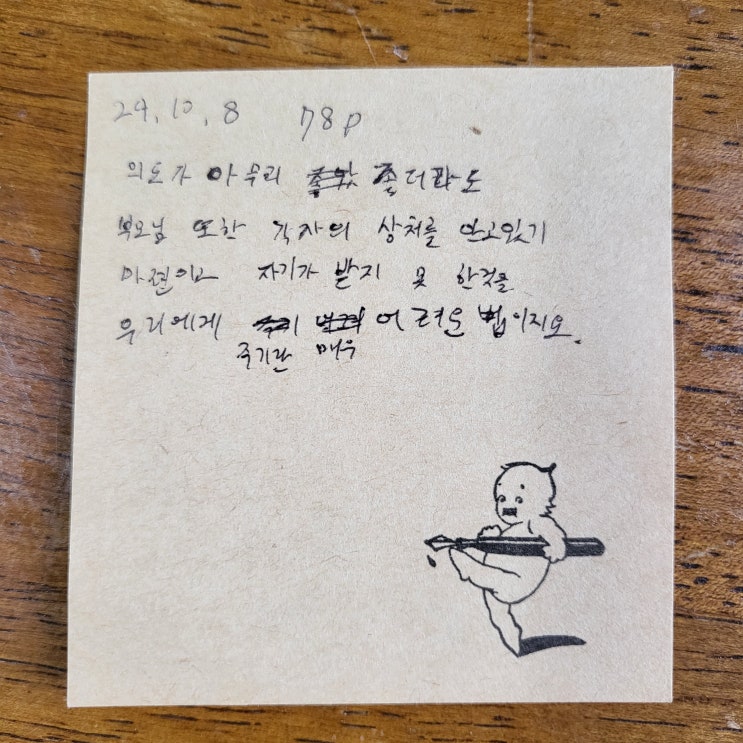 24.10.8 78p
의도가 아무리 좋더라도
부모님 또한 각자의 상처를 안고있기
마련이고 자기가 받지 못 한것을
우리에게 어려운 법이지요.
주기란 매우